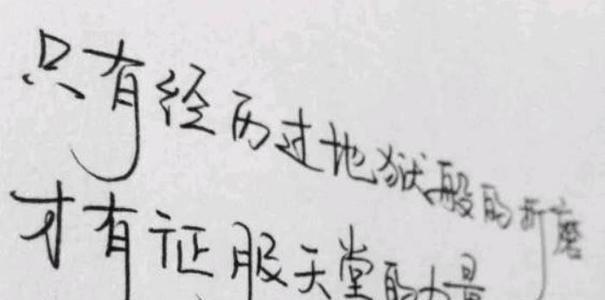 只有经历过地狱般的折磨
才有证服天堂的力量